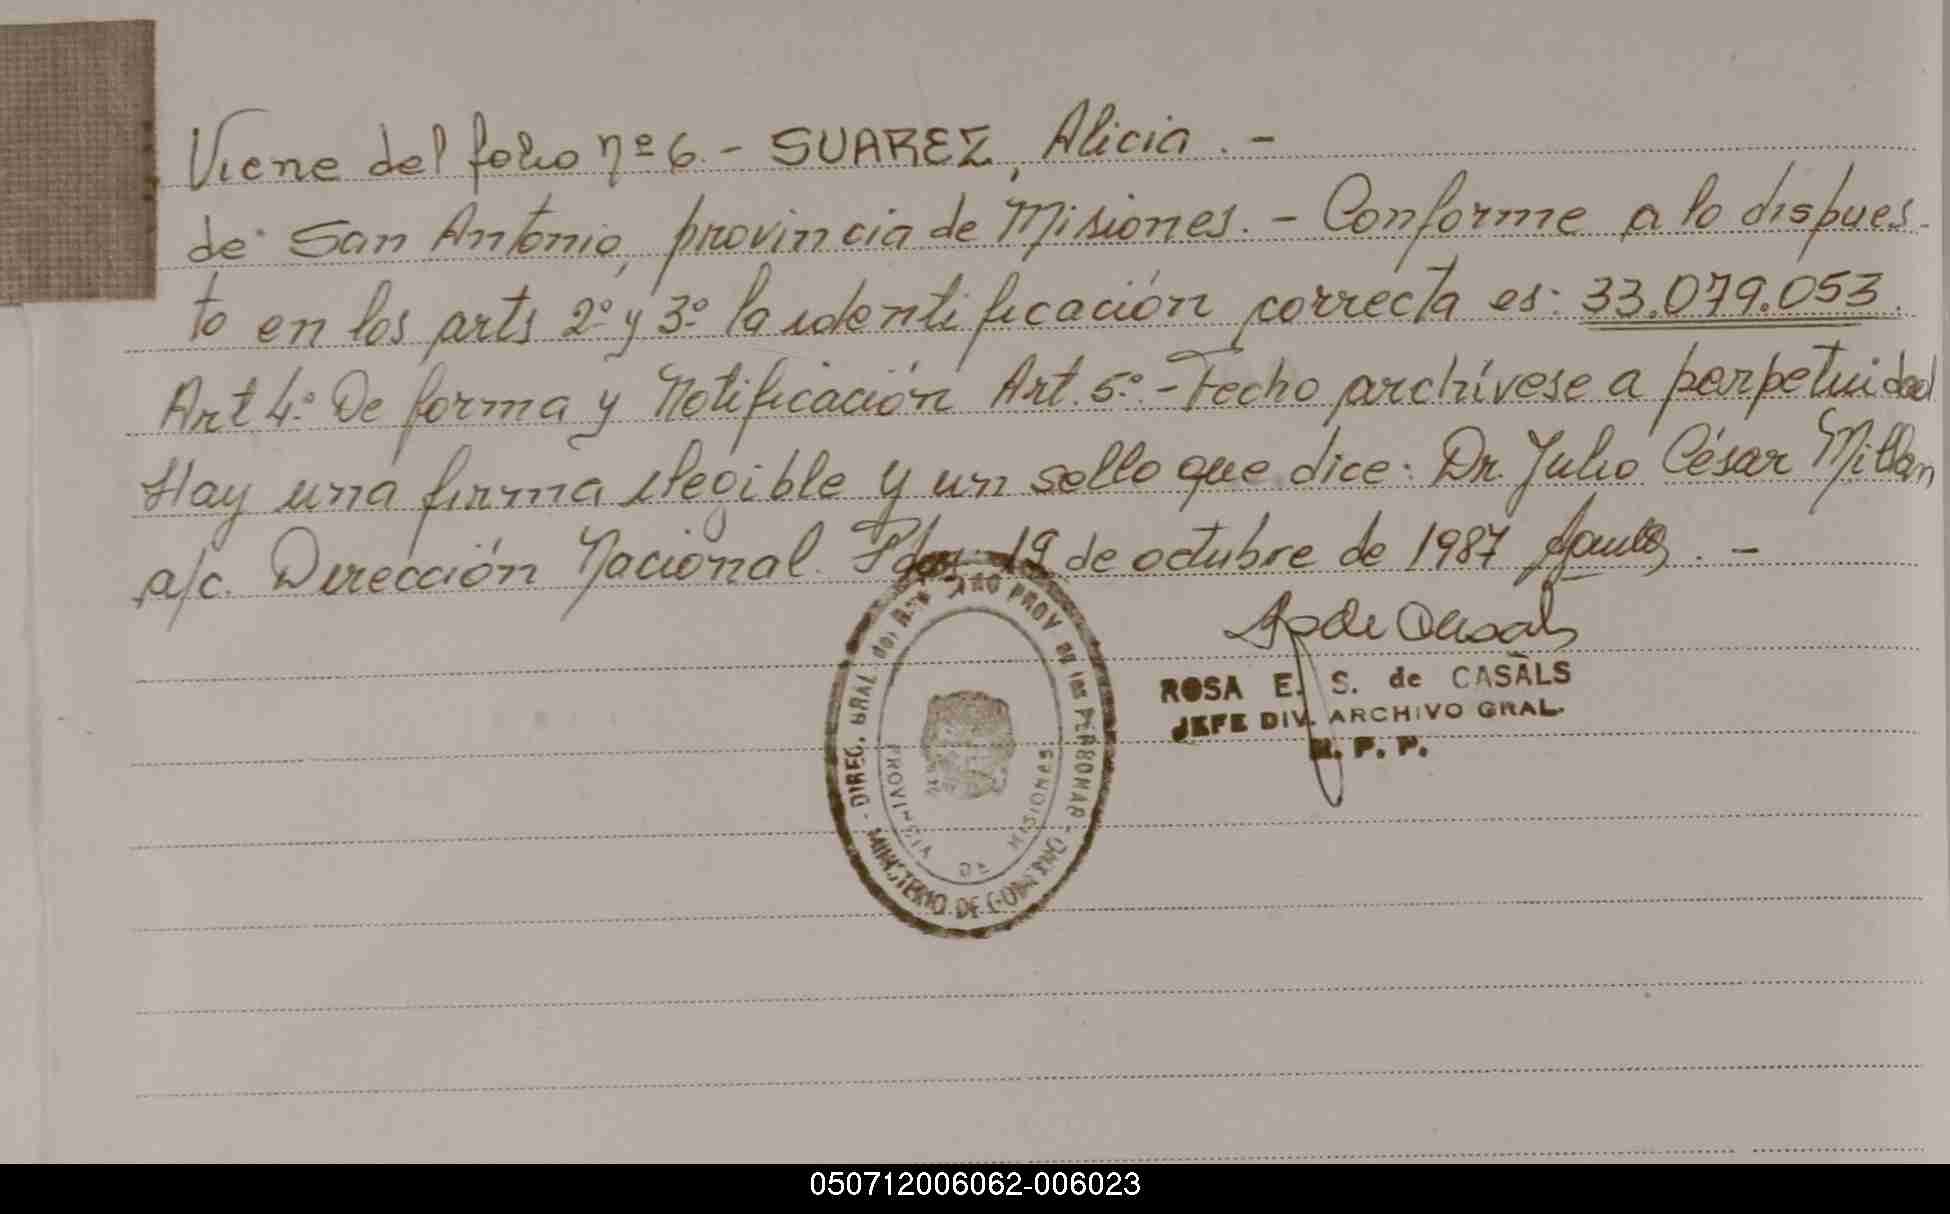 Viene del folio nº 6.- SUAREZ, Alicia. -
de San Antonio, provincia de Misiones. - Conforme a lo dispues-
to en los arts 2º y 3º la identificación correcta es: 33.079.053.
Art 4º De forma y Notificación Art. 5º.- Fecho archívese a perpetuidad
Hay una firma ilegible y un sello que dice: Dr. Julio César Millan
a/c. Dirección Nacional. Pdas. 19 de octubre de 1987 . -
ROSA E. S. de CASALS
JEFE DIV. ARCHIVO GRAL.
R. P. P.
DIREC. GRAL. del PROV. de las PERSONAS
MINISTERIO DE GOBIERNO
PROVINCIA DE MISIONES
050712006062-006023